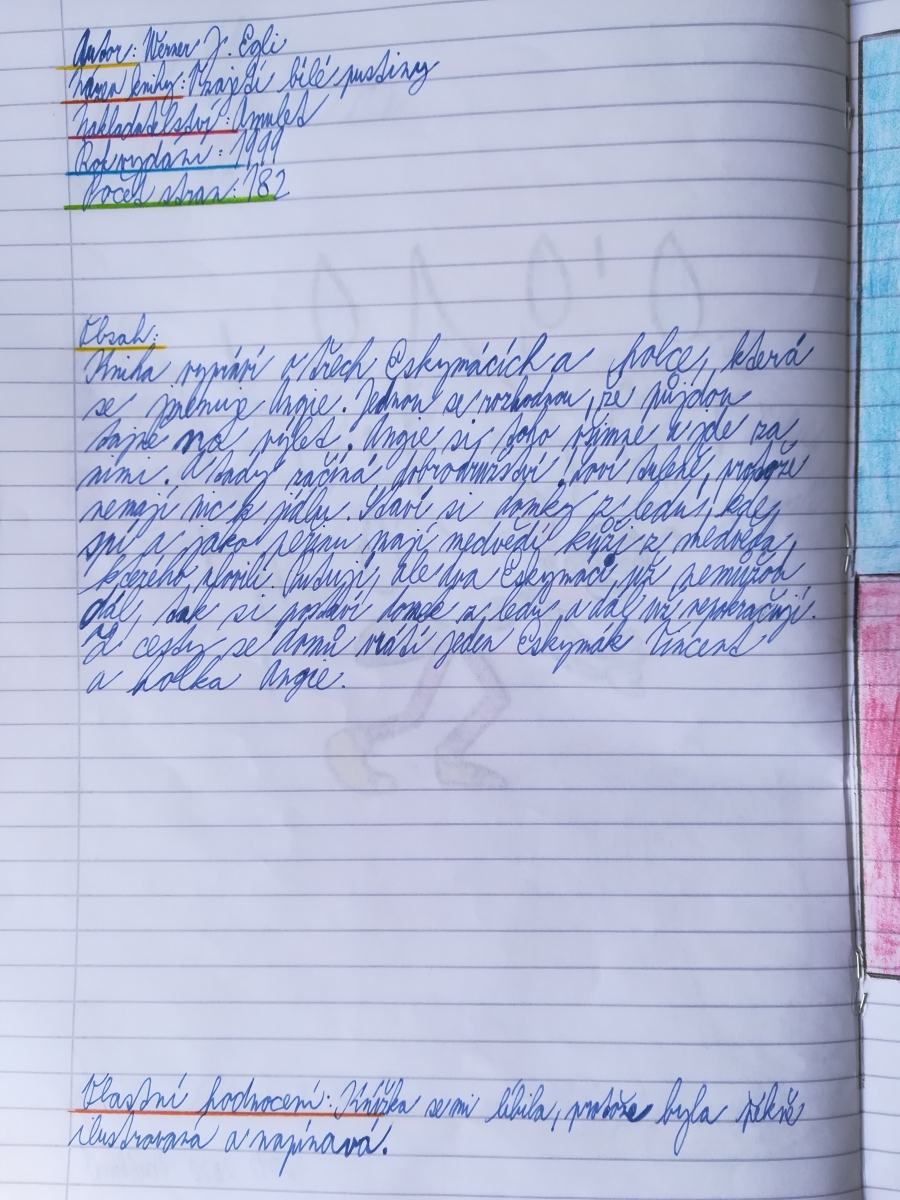 Autor: Werner J. Egli
Název knihy: Tajestí bílé pustiny
Nakladatelství: Amulet
Rok vydání: 1999
Počet stran: 182
Obsah:
Kniha vypráví o třech Eskymácích a holce, která
se jmenuje Angie. Jednou se rozhodnou, že půjdou
tajně na výlet. Angie si toho všimne a jde za
nimi. A tady začíná dobrodružství! Loví tuleně, protože
nemají nic k jídlu. Staví si domky z ledu, kde
spí a jako peřinu mají medvědí kůži z medvěda,
kterého ulovili. Putují, ale dva Eskymáci už nemůžou
dál, tak si postaví domek z ledu a dál už nepokračují.
Z cesty se domů vrátí jeden Eskymák Vincent
a holka Angie.
Vlastní hodnocení: Knížka se mi líbila, protože byla pěkně
ilustrovaná a napínavá.